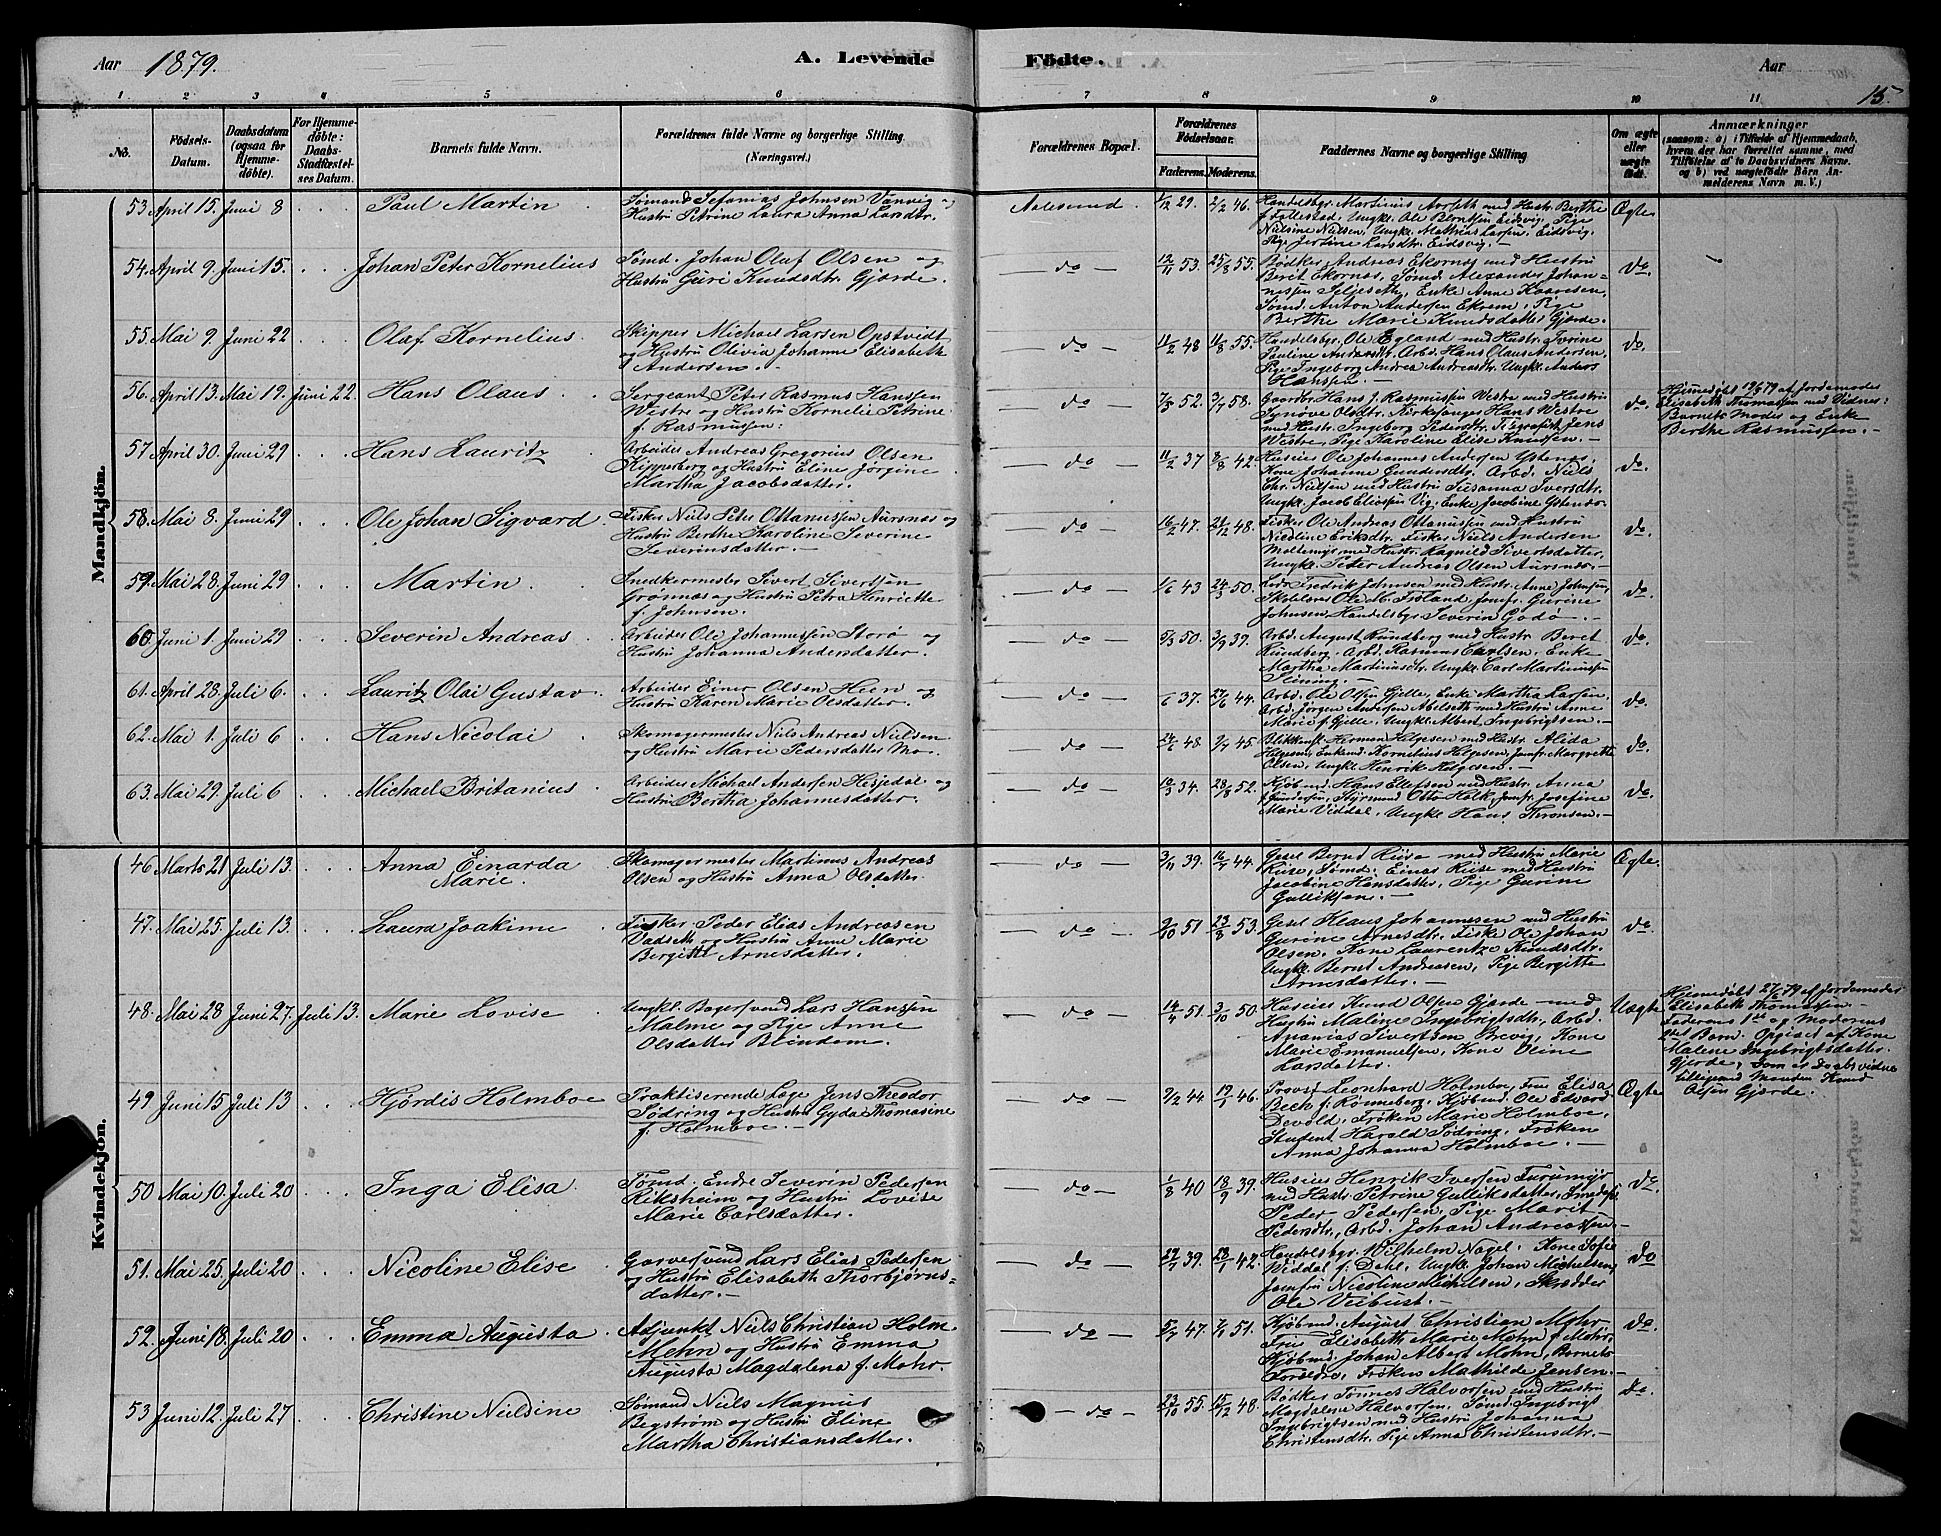 Aar 1879. A. Levende Födte. Aar 15.
1 2 3 4 5 6 7 8 9 10 11
No. Födsels-Datum. Daabsdatum (ogsaa for Hjemme-döbte). For Hjemme-döbte: Daabs-Stadfæstel-ses Datum. Barnets fulde Navn. Forældrenes fulde Navne og borgerlige Stilling. (Næringsvei.) Forældrenes Bopæl. Forældrenes Fødselsaar. Faderens. Moderens. Faddernes Navne og borgerlige Stilling Om ægte eller uægte født. Anmærkninger (saasom: a) i Tilfælde af Hjemmedaab, hvem der har forrettet samme, med Tilføielse af to Daabsvidners Navne. og b) ved uægtefødte Börn An-melderens Navn m. V.)
Mandkjön.
53 April 15. Juni 8 Paul Martin Sømand Sefanias Johnsen Vannvig og
Hustru Petrine Laura Anna Larsdtr.
Aalesund. 1/12 29. 2/2 46. Handelsbgr. Martinus Aarseth med Hustr. Berthe
f. Follestad, Ungkl. Ole Berntsen Eidsvig, Pige
Nielsine Nielsen, Ungkl. Mathias Larsen Eidsvig,
Pige Jertine Larsdtr. Eidsvig.
Ægte
54. April 9. Juni 15. Johan Peter Kornelius Sømd. Johan Oluf Olsen og
Hustru Guri Knudsdtr. Gjørde.
do 12/11 53. 25/8 55. Bødker Andreas Ekornæs med Hustru
Berit Ekornæs, Sømd. Alexander Johan-
nessen Seljeseth, Enke Anne Kaaresen,
Sømd. Anton Andersen Ekrem, Pige
Berthe Marie Knudsdatter Gjørde.
do.
55. Mai 9. Juni 22 Olaf Kornelius. Skipper Michael Larsen Opstvedt
og Hustru Olivia Johanne Elisabeth
Andersen.
do 11/2 48 11/8 55. Handelsbgr. Ole Egland med Hustr. Torine
Pauline Andersdtr. Arbd. Hans Olaus Andersen,
Pige Ingeborg Andrea Andreasdtr. Ungkl. Anders
Hanssen.
do.
56. April 13. Mai 19. Juni 22. Hans Olaus Sergeant Peter Rasmus Hanssen
Westre og Hustru Kornelie Petrine
f. Rasmussen.
do 7/5 52. 3/7 58. Gaardbr. Hans J. Rasmussen Westre med Hustru
Synøve Olsdtr. Kirkesanger Hans Westre
med Hustr. Ingeborg Pedersdtr. Telegrafist Jens
Westre, Pige Karoline Elise Knudsen.
do. Hjemmedøbt 19/5 79 af Jordemoder
Elisabeth Thomassen med Vidner:
Barnets Moder og Enke
Berthe Rasmussen.
57 April 30. Juni 29 Hans Lauritz Arbeider Andreas Gregorius Olsen
Kipperberg og Hustru Eline Jørgine
Martha Jacobsdatter.
do 11/2 37 3/8 42. Huseier Ole Johannes Andersen Ystenæs,
Kone Johanne Gundersdtr. Arbd. Niels
Chr. Nielsen med Hustru Susanna Iversdtr.
Ungkl. Jacob Eliassen Vig, Enke Jacobine Ystenæs.
do.
58. Mai 8. Juni 29 Ole Johan Sigvard. Fisker Niels Peter Ottanussen Aursnæs og
Hustru Berthe Karoline Severine
Severinsdatter.
do 16/2 47. 21/12 48. Fisker Ole Andreas Ottanussen med Hustru
Nicoline Eriksdtr. Fisker Niels Andersen
Moltemyr, med Hustr. Ragnild Sivertsdatter,
Ungkl. Peter Andreas Olsen Aursnæs.
do.
59. Mai 28. Juni 29 Martin Snedkermester Sivert Sivertsen
Grøsnæs og Hustru Petra Henriette
f. Johnsen.
do 1/6 43 24/3 50. Lods Fredrik Johnsen med Hustr. Anne Johnsen,
Skolelærer Ole M. Frøland, Jomf. Gurine
Johnsen, Handelsbgr. Severin Godø.
do.
60 Juni 1. Juni 29 Severin Andreas Arbeider Ole Johannessen Storø og
Hustru Johanna Andersdatter.
do 5/3 50. 3/9 39. Arbd. August Rundberg med Hustr. Beret
Rundberg. Arbd. Rasmus Carlsen, Enke
Martha Martinusdtr. Ungkl. Carl Martinussen
Slining.
do.
61. April 28. Juli 6. Lauritz Olai Gustav. Arbeider Einer Olsen Heen og
Hustru Karen Marie Olsdatter.
do /6 37. 27/6 44. Arbd. Ole Olsen Gjelle, Enke Martha Larsen,
Arbd. Jørgen Andersen Abelseth med Hustru Anne
Marie f. Gjelle. Ungkl. Albert Ingebrigtsen.
do.
62. Mai 1. Juli 6 Hans Nicolai Skomagermester Niels Andreas Nielsen
og Hustru Marie Pedersdatter Mo.
do 24/6 48. 9/7 45. Blikkensl. Herman Helgesen med Hustr. Alida
Helgesen, Enkemd. Kornelius Helgesen, Jomf. Margrethe
Olsen, Ungkl. Henrik Helgesen.
do
63. Mai 29. Juli 6 Michael Britanius Arbeider Michael Andersen Hesjedal og
Hustru Bertha Johannesdatter.
do 10/3 34. 28/8 52. Kjøbmd. Hans Ellefsen med Hustr. Anna
f. Gundersen, Styrmand Otto Holk, Jomfr. Josefine
Marie Viddal, Ungkl. Hans Thronsen.
do
Kvindekjön.
46 Marts 21 Juli 13. Anna Einarda
Marie.
Skomagermester Martinus Andreas
Olsen og Hustru Anna Olsdatter.
do 3/11 39. 16/7 44. Gesel Bernd Riise med Hustru Marie
Riise, Sømd. Einar Riise med Hustru
Jacobine Hansdatter, Pige Gurine
Gulliksen.
Ægte.
47. Mai 25. Juli 13. Laura Joakime Fisker Peder Elias Andreasen
Vadseth og Hustru Anne Marie
Bergitte Arnesdatter.
do 9/10 51 23/8 53. Gesel Klaus Johannessen med Hustru
Gurine Arnesdtr. Fisker Ole Johan
Olsen. Kone Laurentze Knudsdtr.
Ungkl. Bernt Andreasen, Pige Bergitte
Arnesdatter.
do.
48. Mai 28 Juni 27. Juli 13. Marie Lovise Ungkl. Bagersvend Lars Hanssen
Malme og Pige Anne
Olsdatter Blindem.
do 14/4 51. 3/10 50. Huseier Knud Olsen Gjørde med
Hustru Maline Ingebrigtsdtr., Arbd.
Ananias Sivertsen Brevig, Kone
Marie Emanuelsen, Kone Oline
Larsdatter.
Uægte Hjemedøbt 27/6 79 af Jordemoder
Elisabeth Thomassen.
Faderens 1ste og Moderens
2det Barn. Opgivet af Kone
Malene Ingebrigtsdatter
Gjørde, som er Daabsvidne
tilligemed Manden Knud
Olsen Gjørde.
49 Juni 15 Juli 13 Hjørdis Holmboe Praktiserende Læge Jens Theodor
Sødring og Hustru Gyda Thomasine
f. Holmboe.
do 9/2 44 19/1 46. Provst Leonhard Holmboe, Frue Elisa
Bech f. Rønneberg, Kjøbmd. Ole Edvard
Devold, Frøken Marie Holmboe,
Student Harald Sødring, Frøken
Anna Johanna Holmboe.
Ægte
50 Mai 10. Juli 20 Inga Elisa Tømd. Endre Severin Pedersen
Riksheim og Hustru Lovise
Marie Carlsdatter.
do 1/8 40 18/9 39. Huseier Henrik Iversen Furumyr
med Hustr. Petrine Gulliksdatter, Smedsv.
Peder Pedersen, Pige Marit
Pedersdtr, Arbd. Johan Andreassen.
do.
51. Mai 25. Juli 20 Nicoline Elise Garversvend Lars Elias Pedersen
og Hustru Elisabeth Thorbjørns-
datter.
do 29/7 39. 28/1 42. Handelsbgr. Wilhelm Nagel. Kone Sofie
Widdal f. Dahl, Ungkl. Johan Michelsen,
Jomfru Nicoline Michelsen, Skrædder
Ole Veibust.
do
52. Juni 18. Juli 20 Emma Augusta Adjunkt Niels Christian Holm
Mehn og Hustru Emma
Augusta Magdalena f. Mohr.
do 5/7 47. 7/1 51. Kjøbmd. August Christian Mohr,
Frue Elisabeth Marie Mohn f. Mohr,
Kjøbmd. Johan Albert Mohn, Barnets
Forældre, Frøken Mathilde Jensen.
do.
53 Juni 12. Juli 27 Christine Nielsine Sømand Niels Magnus
Begstrøm og Hustru Eline
Martha Christiansdatter.
do 23/10 55. 15/12 48. Bødker Tønnes Halvorsen med Hustru
Magdalene Halvorsen, Sømd. Ingebrigt
Ingebrigtsen med Hustru Johanna
Christensdtr. Pige Anna Christensdtr.
do.